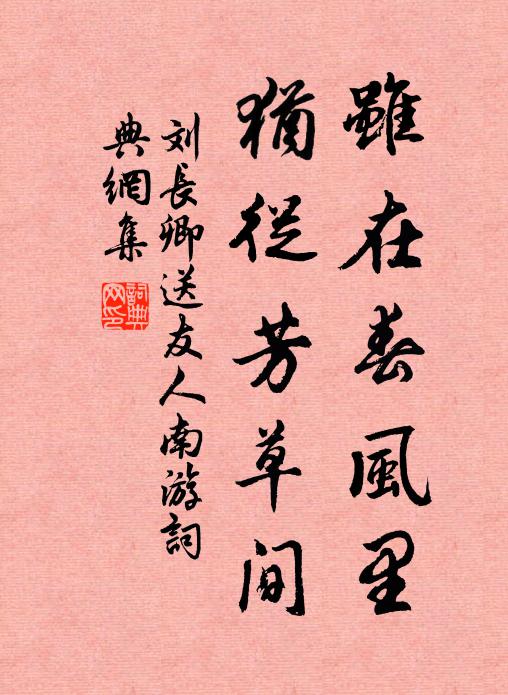 雖在春風里
猶從芳草間
刘長卿送友人南游詞
典網集
詞典
网印